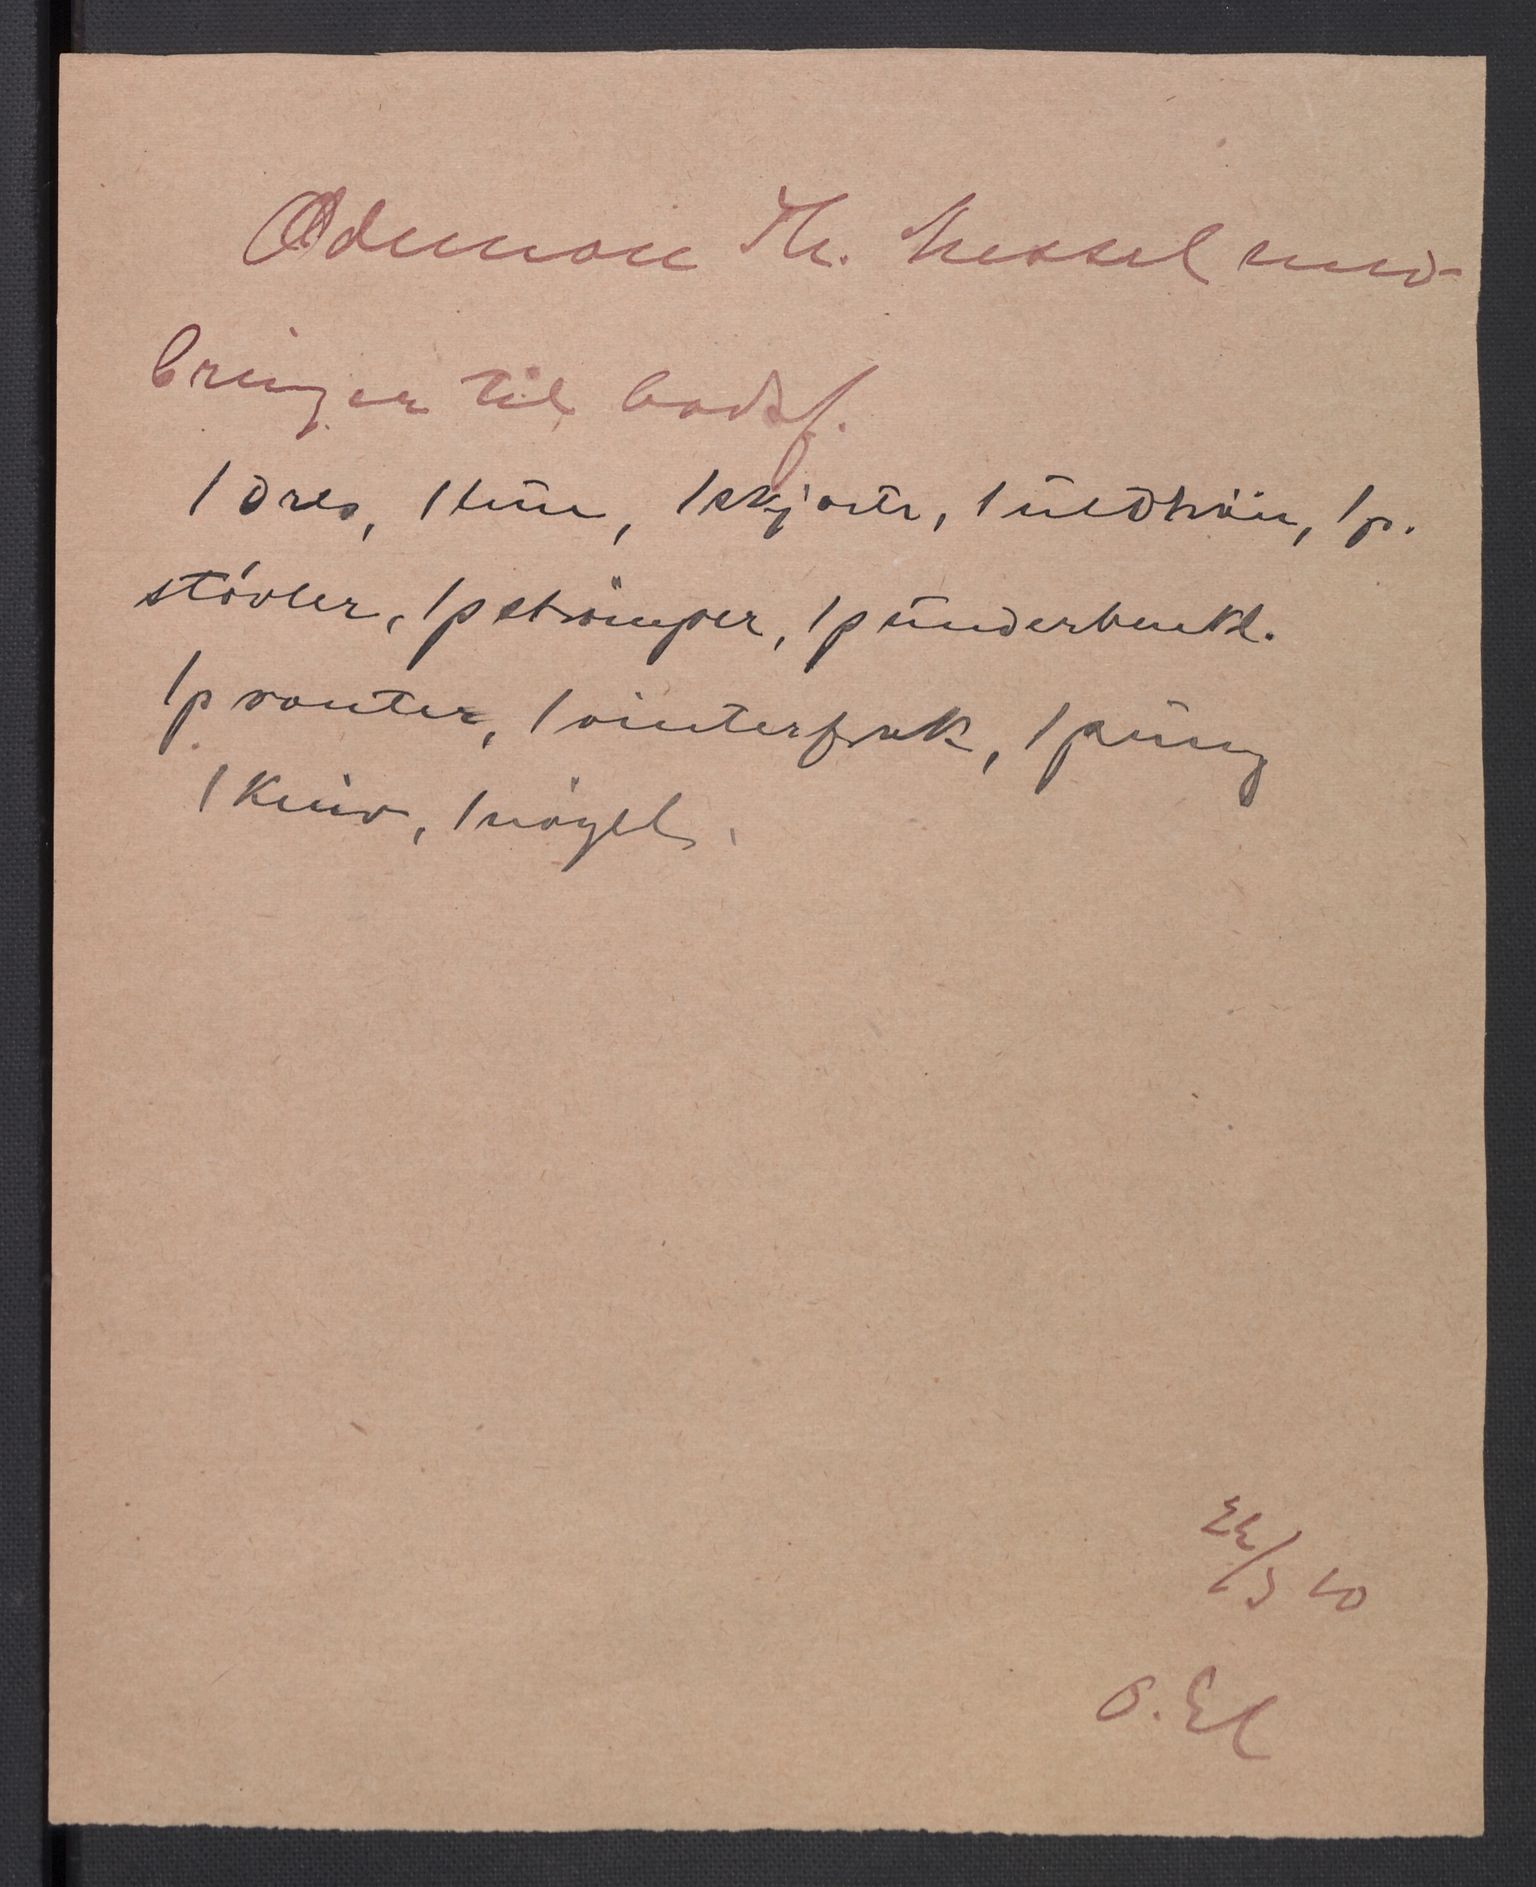 Ødemann Th. Messel med-
bringer til bodsf.
1 dres, 1 lue, 1 skjorte, 1 uldtröie, 1 p.
stövler, 1 p strömper, 1 p underbenkl.
1 p vanter, 1 vinterfrak, 1 pung
1 kniv, 1 nögel.
22/3 20
O. El